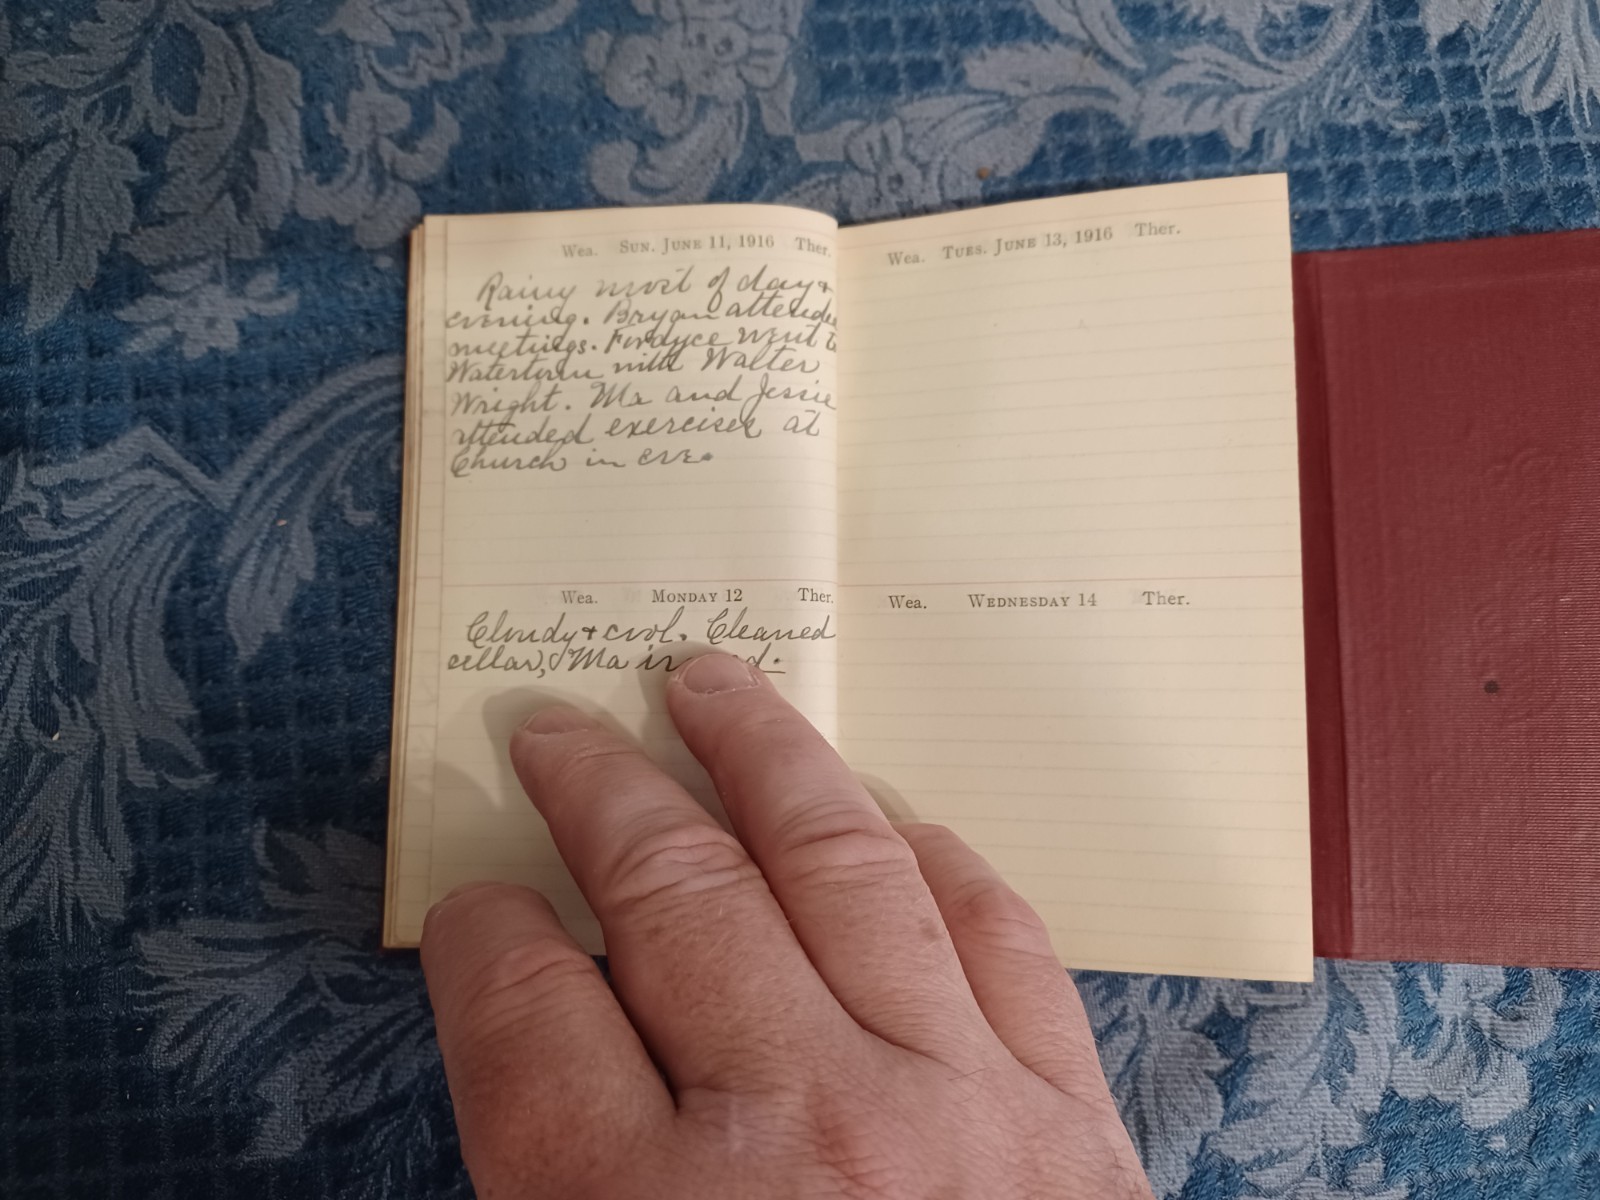 Wea. SUN. JUNE 11, 1916 Ther.
Rainy most of day &
evening. Bryan attended
meetings. Fordyce went to
Watertown with Walter
Wright. Ma and Jessie
attended exercises at
Church in eve.
Wea. MONDAY 12 Ther.
Cloudy & cool. Cleaned
cellar, & Ma
Wea. TUES. JUNE 13, 1916 Ther.
Wea. WEDNESDAY 14 Ther.